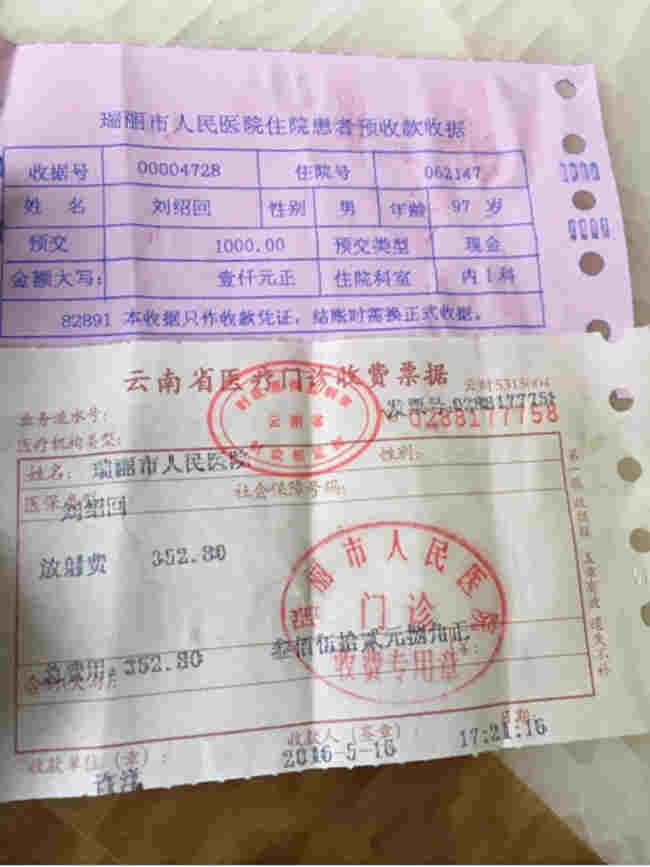 瑞丽市人民医院住院患者预收款收据
收据号 00004728 住院号 062147
姓 名 刘绍回 性别 男 年龄 97 岁
预交 1000.00 预交类型 现金
金额大写: 壹仟元正 住院科室 内1科
82891 本收据只作收款凭证，结账时需换正式收据。
云南省医疗门诊收费票据
业务流水号: 发票号:0288177758
医疗机构类型: 0288177758
姓名: 瑞丽市人民医院 性别:
刘绍回 社会保障号码:
放射费 352.80
瑞丽市人民医院
门诊
收费专用章
总费用:352.80 叁佰伍拾贰元捌角正
收款单位（章）: 收款人（签章） 日期
2016-5-16 17:21:16